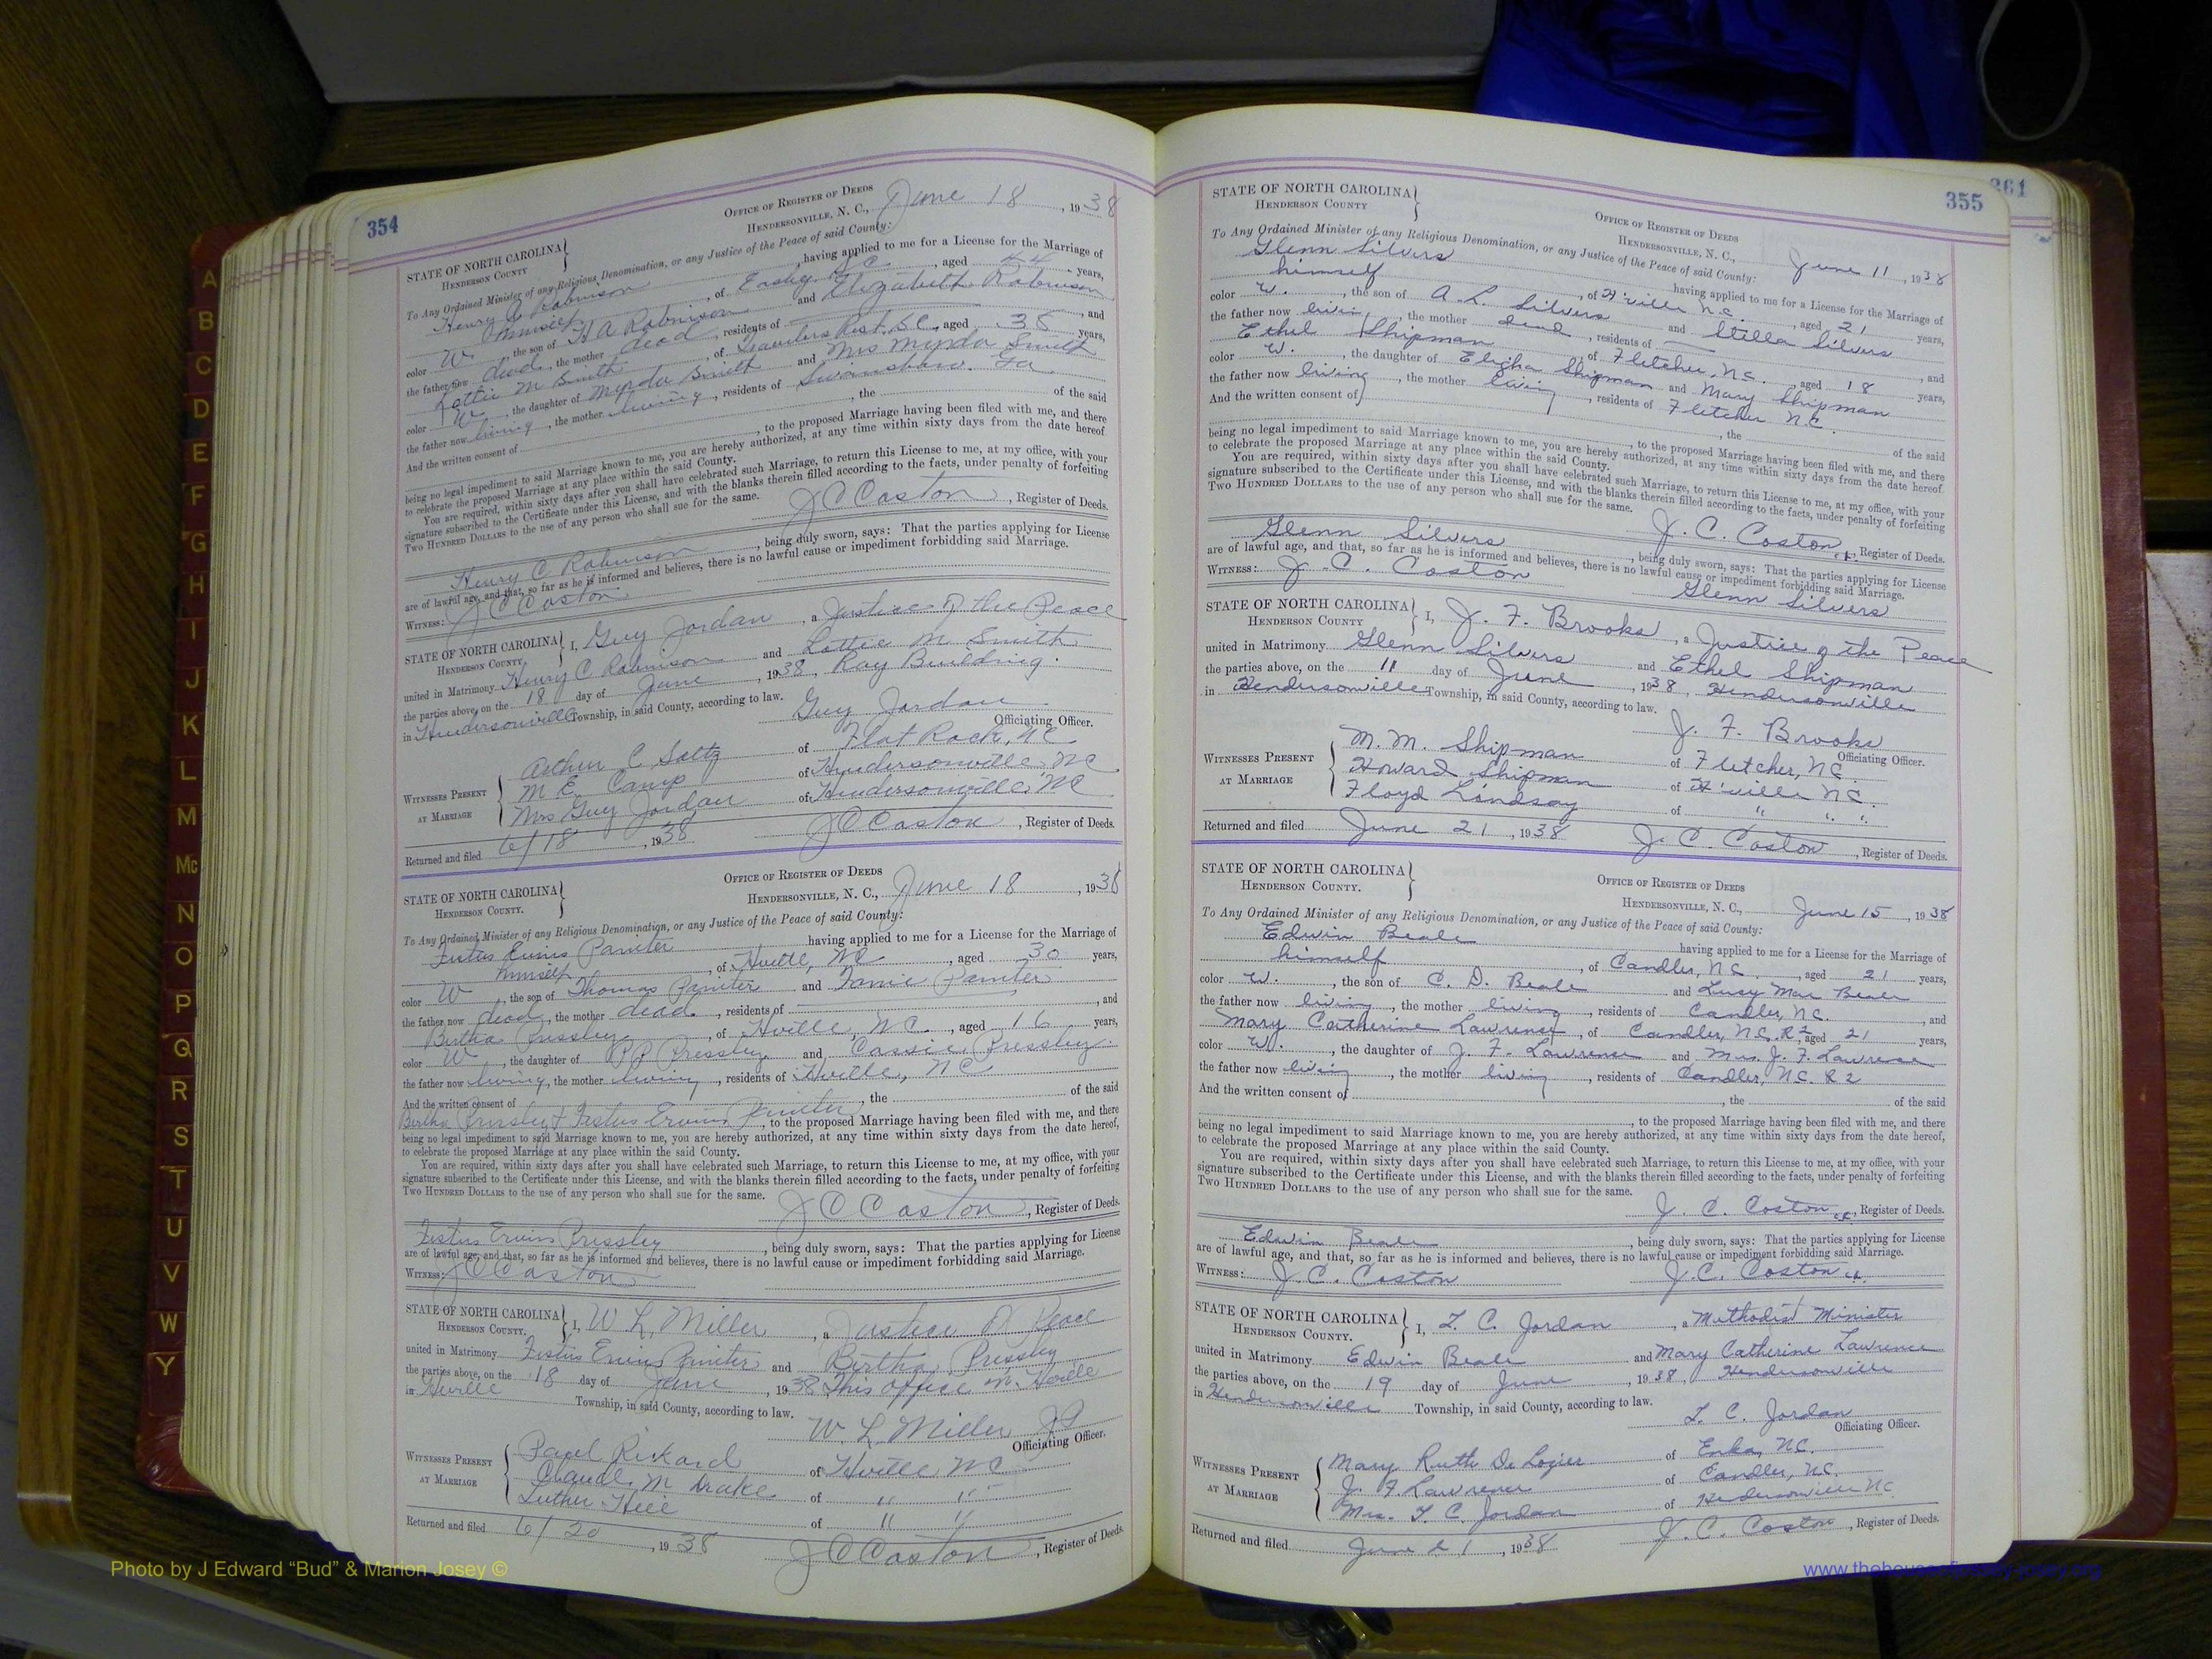 354
OFFICE OF REGISTER OF DEEDS
STATE OF NORTH CAROLINA
HENDERSON COUNTY
HENDERSONVILLE, N. C., June 18, 1938
To Any Ordained Minister of any Religious Denomination, or any Justice of the Peace of said County:
Henry C Robinson having applied to me for a License for the Marriage of
himself, of Easley S C, aged 44 years,
color W, the son of H A Robinson and Elizabeth Robinson
the father now dead, the mother dead, residents of , and
Lottie M Smith, of Travelers Rest, S.C., aged 35 years,
color W, the daughter of Mynda Smith and Mrs Mynda Smith
the father now living, the mother living, residents of Swansboro, Ga
And the written consent of , the of the said
, to the proposed Marriage having been filed with me, and there
being no legal impediment to said Marriage known to me, you are hereby authorized, at any time within sixty days from the date hereof
to celebrate the proposed Marriage at any place within the said County.
You are required, within sixty days after you shall have celebrated such Marriage, to return this License to me, at my office, with your
signature subscribed to the Certificate under this License, and with the blanks therein filled according to the facts, under penalty of forfeiting
TWO HUNDRED DOLLARS to the use of any person who shall sue for the same.
J C Coston, Register of Deeds.
Henry C Robinson, being duly sworn, says: That the parties applying for License
are of lawful age, and that, so far as he is informed and believes, there is no lawful cause or impediment forbidding said Marriage.
WITNESS: J C Coston
STATE OF NORTH CAROLINA
HENDERSON COUNTY
I, Guy Jordan, a Justice of the Peace
united in Matrimony Henry C Robinson and Lottie M. Smith
the parties above, on the 18 day of June, 1938, Ray Building.
in Hendersonville Township, in said County, according to law.
Guy Jordan
Officiating Officer.
WITNESSES PRESENT AT MARRIAGE
Arthur C Saltz of Flat Rock, NC
M E Camp of Hendersonville NC
Mrs Guy Jordan of Hendersonville NC
Returned and filed 6/18, 1938 J C Coston, Register of Deeds.
OFFICE OF REGISTER OF DEEDS
STATE OF NORTH CAROLINA
HENDERSON COUNTY.
HENDERSONVILLE, N. C., June 18, 1938
To Any Ordained Minister of any Religious Denomination, or any Justice of the Peace of said County:
Festus Ervin Painter having applied to me for a License for the Marriage of
himself, of Hville, NC, aged 30 years,
color W, the son of Thomas Painter and Janie Painter
the father now dead, the mother dead, residents of , and
Bertha Pressley, of Hville, NC, aged 16 years,
color W, the daughter of P P Pressley and Cassie Pressley
the father now living, the mother living, residents of Hville, NC
And the written consent of , the of the said
Bertha Pressley & Festus Ervin Painter, to the proposed Marriage having been filed with me, and there
being no legal impediment to said Marriage known to me, you are hereby authorized, at any time within sixty days from the date hereof,
to celebrate the proposed Marriage at any place within the said County.
You are required, within sixty days after you shall have celebrated such Marriage, to return this License to me, at my office, with your
signature subscribed to the Certificate under this License, and with the blanks therein filled according to the facts, under penalty of forfeiting
TWO HUNDRED DOLLARS to the use of any person who shall sue for the same.
J C Coston, Register of Deeds.
Festus Ervin Pressley, being duly sworn, says: That the parties applying for License
are of lawful age, and that, so far as he is informed and believes, there is no lawful cause or impediment forbidding said Marriage.
WITNESS: J C Coston
STATE OF NORTH CAROLINA
HENDERSON COUNTY.
I, W L Miller, a Justice of Peace
united in Matrimony Festus Ervin Painter and Bertha Pressley
the parties above, on the 18 day of June, 1938 This office in Hville
in Hville Township, in said County, according to law.
W. L. Miller JP
Officiating Officer.
WITNESSES PRESENT AT MARRIAGE
Pearl Rickard of Hville NC
Claude M Drake of " "
Luther Hill of " "
Returned and filed 6/20, 1938 J C Coston, Register of Deeds.
355
361
STATE OF NORTH CAROLINA
HENDERSON COUNTY
OFFICE OF REGISTER OF DEEDS
HENDERSONVILLE, N. C., June 11, 1938
To Any Ordained Minister of any Religious Denomination, or any Justice of the Peace of said County:
Glenn Silvers having applied to me for a License for the Marriage of
himself, of H'ville N.C., aged 21 years,
color W., the son of A. L. Silvers and Stella Silvers
the father now living, the mother dead, residents of , and
Ethel Shipman, of Fletcher, N.C., aged 18 years,
color W., the daughter of Elicha Shipman and Mary Shipman
the father now living, the mother living, residents of Fletcher N.C.
And the written consent of , the of the said
, to the proposed Marriage having been filed with me, and there
being no legal impediment to said Marriage known to me, you are hereby authorized, at any time within sixty days from the date hereof
to celebrate the proposed Marriage at any place within the said County.
You are required, within sixty days after you shall have celebrated such Marriage, to return this License to me, at my office, with your
signature subscribed to the Certificate under this License, and with the blanks therein filled according to the facts, under penalty of forfeiting
TWO HUNDRED DOLLARS to the use of any person who shall sue for the same.
J. C. Coston, Register of Deeds.
Glenn Silvers, being duly sworn, says: That the parties applying for License
are of lawful age, and that, so far as he is informed and believes, there is no lawful cause or impediment forbidding said Marriage.
WITNESS: J. C. Coston Glenn Silvers
STATE OF NORTH CAROLINA
HENDERSON COUNTY
I, J. F. Brooks, a Justice of the Peace
united in Matrimony Glenn Silvers and Ethel Shipman
the parties above, on the 11 day of June, 1938, Hendersonville
in Hendersonville Township, in said County, according to law.
J. F. Brooks
Officiating Officer.
WITNESSES PRESENT AT MARRIAGE
M. M. Shipman of Fletcher, N.C.
Howard Shipman of H'ville N.C.
Floyd Lindsay of " " "
Returned and filed June 21, 1938 J. C. Coston, Register of Deeds.
STATE OF NORTH CAROLINA
HENDERSON COUNTY.
OFFICE OF REGISTER OF DEEDS
HENDERSONVILLE, N. C., June 15, 1938
To Any Ordained Minister of any Religious Denomination, or any Justice of the Peace of said County:
Edwin Beale having applied to me for a License for the Marriage of
himself, of Candler, N.C., aged 21 years,
color W., the son of C. D. Beale and Lucy Mae Beale
the father now living, the mother living, residents of Candler, N.C., and
Mary Catherine Lawrence, of Candler, N.C. R2, aged 21 years,
color W., the daughter of J. F. Lawrence and Mrs. J. F. Lawrence
the father now living, the mother living, residents of Candler, N.C. R2
And the written consent of , the of the said
, to the proposed Marriage having been filed with me, and there
being no legal impediment to said Marriage known to me, you are hereby authorized, at any time within sixty days from the date hereof,
to celebrate the proposed Marriage at any place within the said County.
You are required, within sixty days after you shall have celebrated such Marriage, to return this License to me, at my office, with your
signature subscribed to the Certificate under this License, and with the blanks therein filled according to the facts, under penalty of forfeiting
TWO HUNDRED DOLLARS to the use of any person who shall sue for the same.
J. C. Coston, Register of Deeds.
Edwin Beale, being duly sworn, says: That the parties applying for License
are of lawful age, and that, so far as he is informed and believes, there is no lawful cause or impediment forbidding said Marriage.
WITNESS: J. C. Coston J. C. Coston
STATE OF NORTH CAROLINA
HENDERSON COUNTY.
I, L. C. Jordan, a Methodist Minister
united in Matrimony Edwin Beale and Mary Catherine Lawrence
the parties above, on the 19 day of June, 1938, Hendersonville
in Hendersonville Township, in said County, according to law.
L. C. Jordan
Officiating Officer.
WITNESSES PRESENT AT MARRIAGE
Mary Ruth De Lozier of Enka, N.C.
J. F. Lawrence of Candler, N.C.
Mrs. L. C. Jordan of Hendersonville N.C.
Returned and filed June 21, 1938 J. C. Coston, Register of Deeds.
A
B
C
D
E
F
G
H
I
J
K
L
M
Mc
N
O
P
Q
R
S
T
U
V
W
Y
Photo by J Edward "Bud" & Marion Josey ©